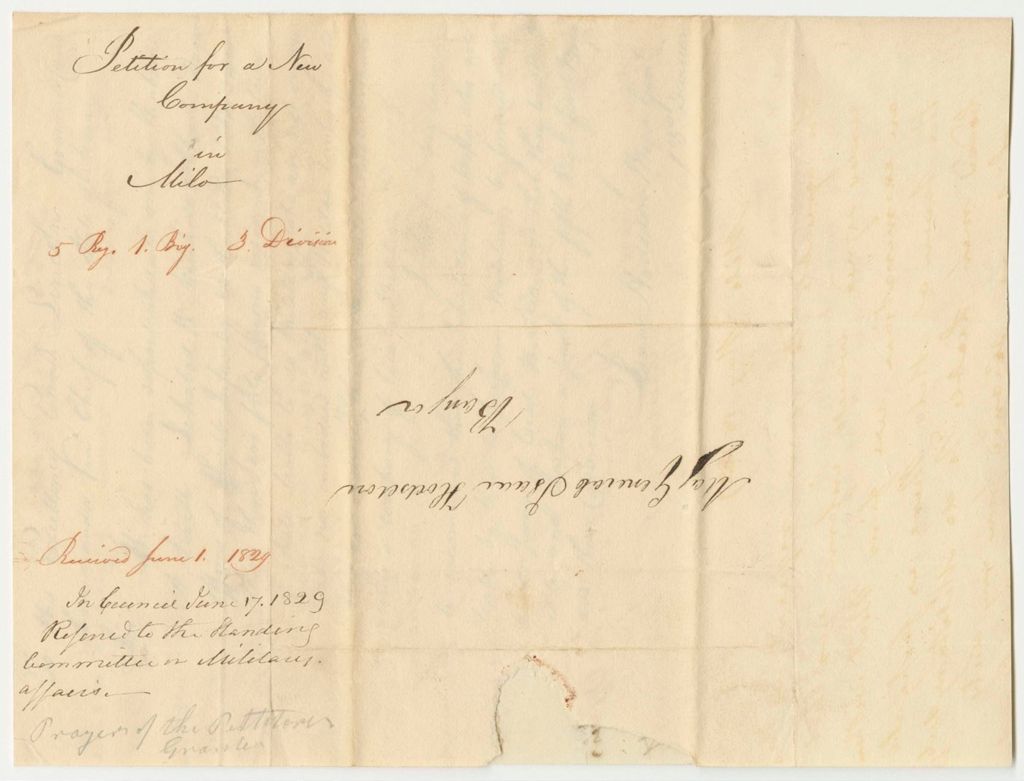 Petition for a New
Company
in
Milo
5 Reg. 1. Brig. 3. Division
Received June 1. 1829
In Council June 17. 1829
Referred to the Standing
Committee on Military
affairs.
Prayer of the Petitioners
Granted
Maj General Isaac Hodsdon
Bangor